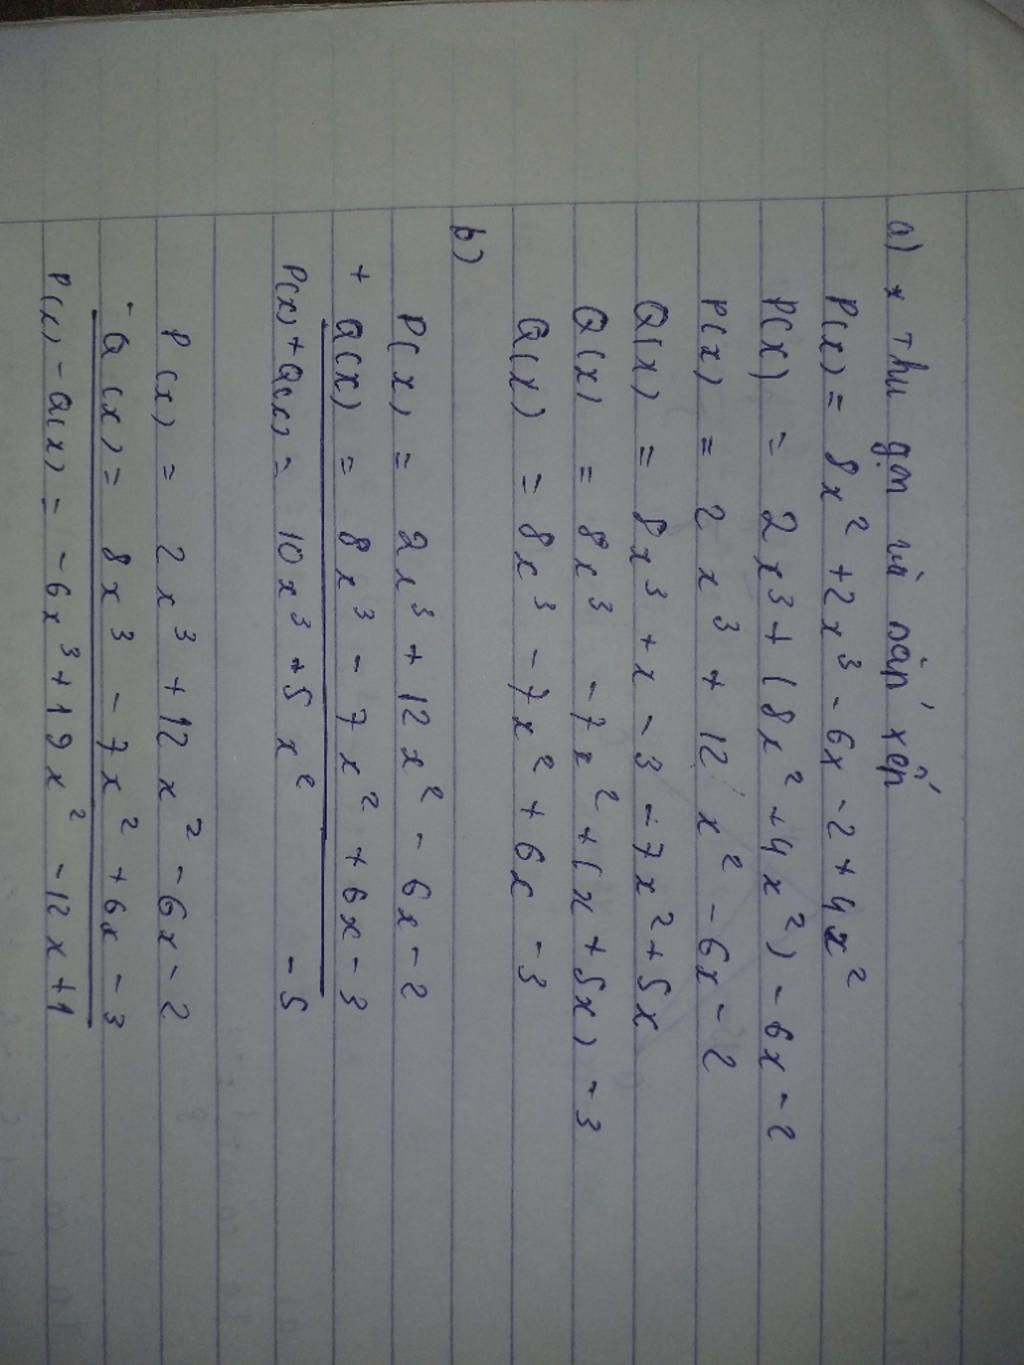 a) * Thu gọn và sắp xếp
P(x) = 8x² + 2x³ - 6x - 2 + 4x²
P(x) = 2x³ + (8x² + 4x²) - 6x - 2
P(x) = 2x³ + 12x² - 6x - 2
Q(x) = 8x³ + x - 3 - 7x² + 5x
Q(x) = 8x³ - 7x² + (x + 5x) - 3
Q(x) = 8x³ - 7x² + 6x - 3
b)
P(x) = 2x³ + 12x² - 6x - 2
+ Q(x) = 8x³ - 7x² + 6x - 3
P(x) + Q(x) = 10x³ + 5x² - 5
P(x) = 2x³ + 12x² - 6x - 2
- Q(x) = 8x³ - 7x² + 6x - 3
P(x) - Q(x) = - 6x³ + 19x² - 12x + 1